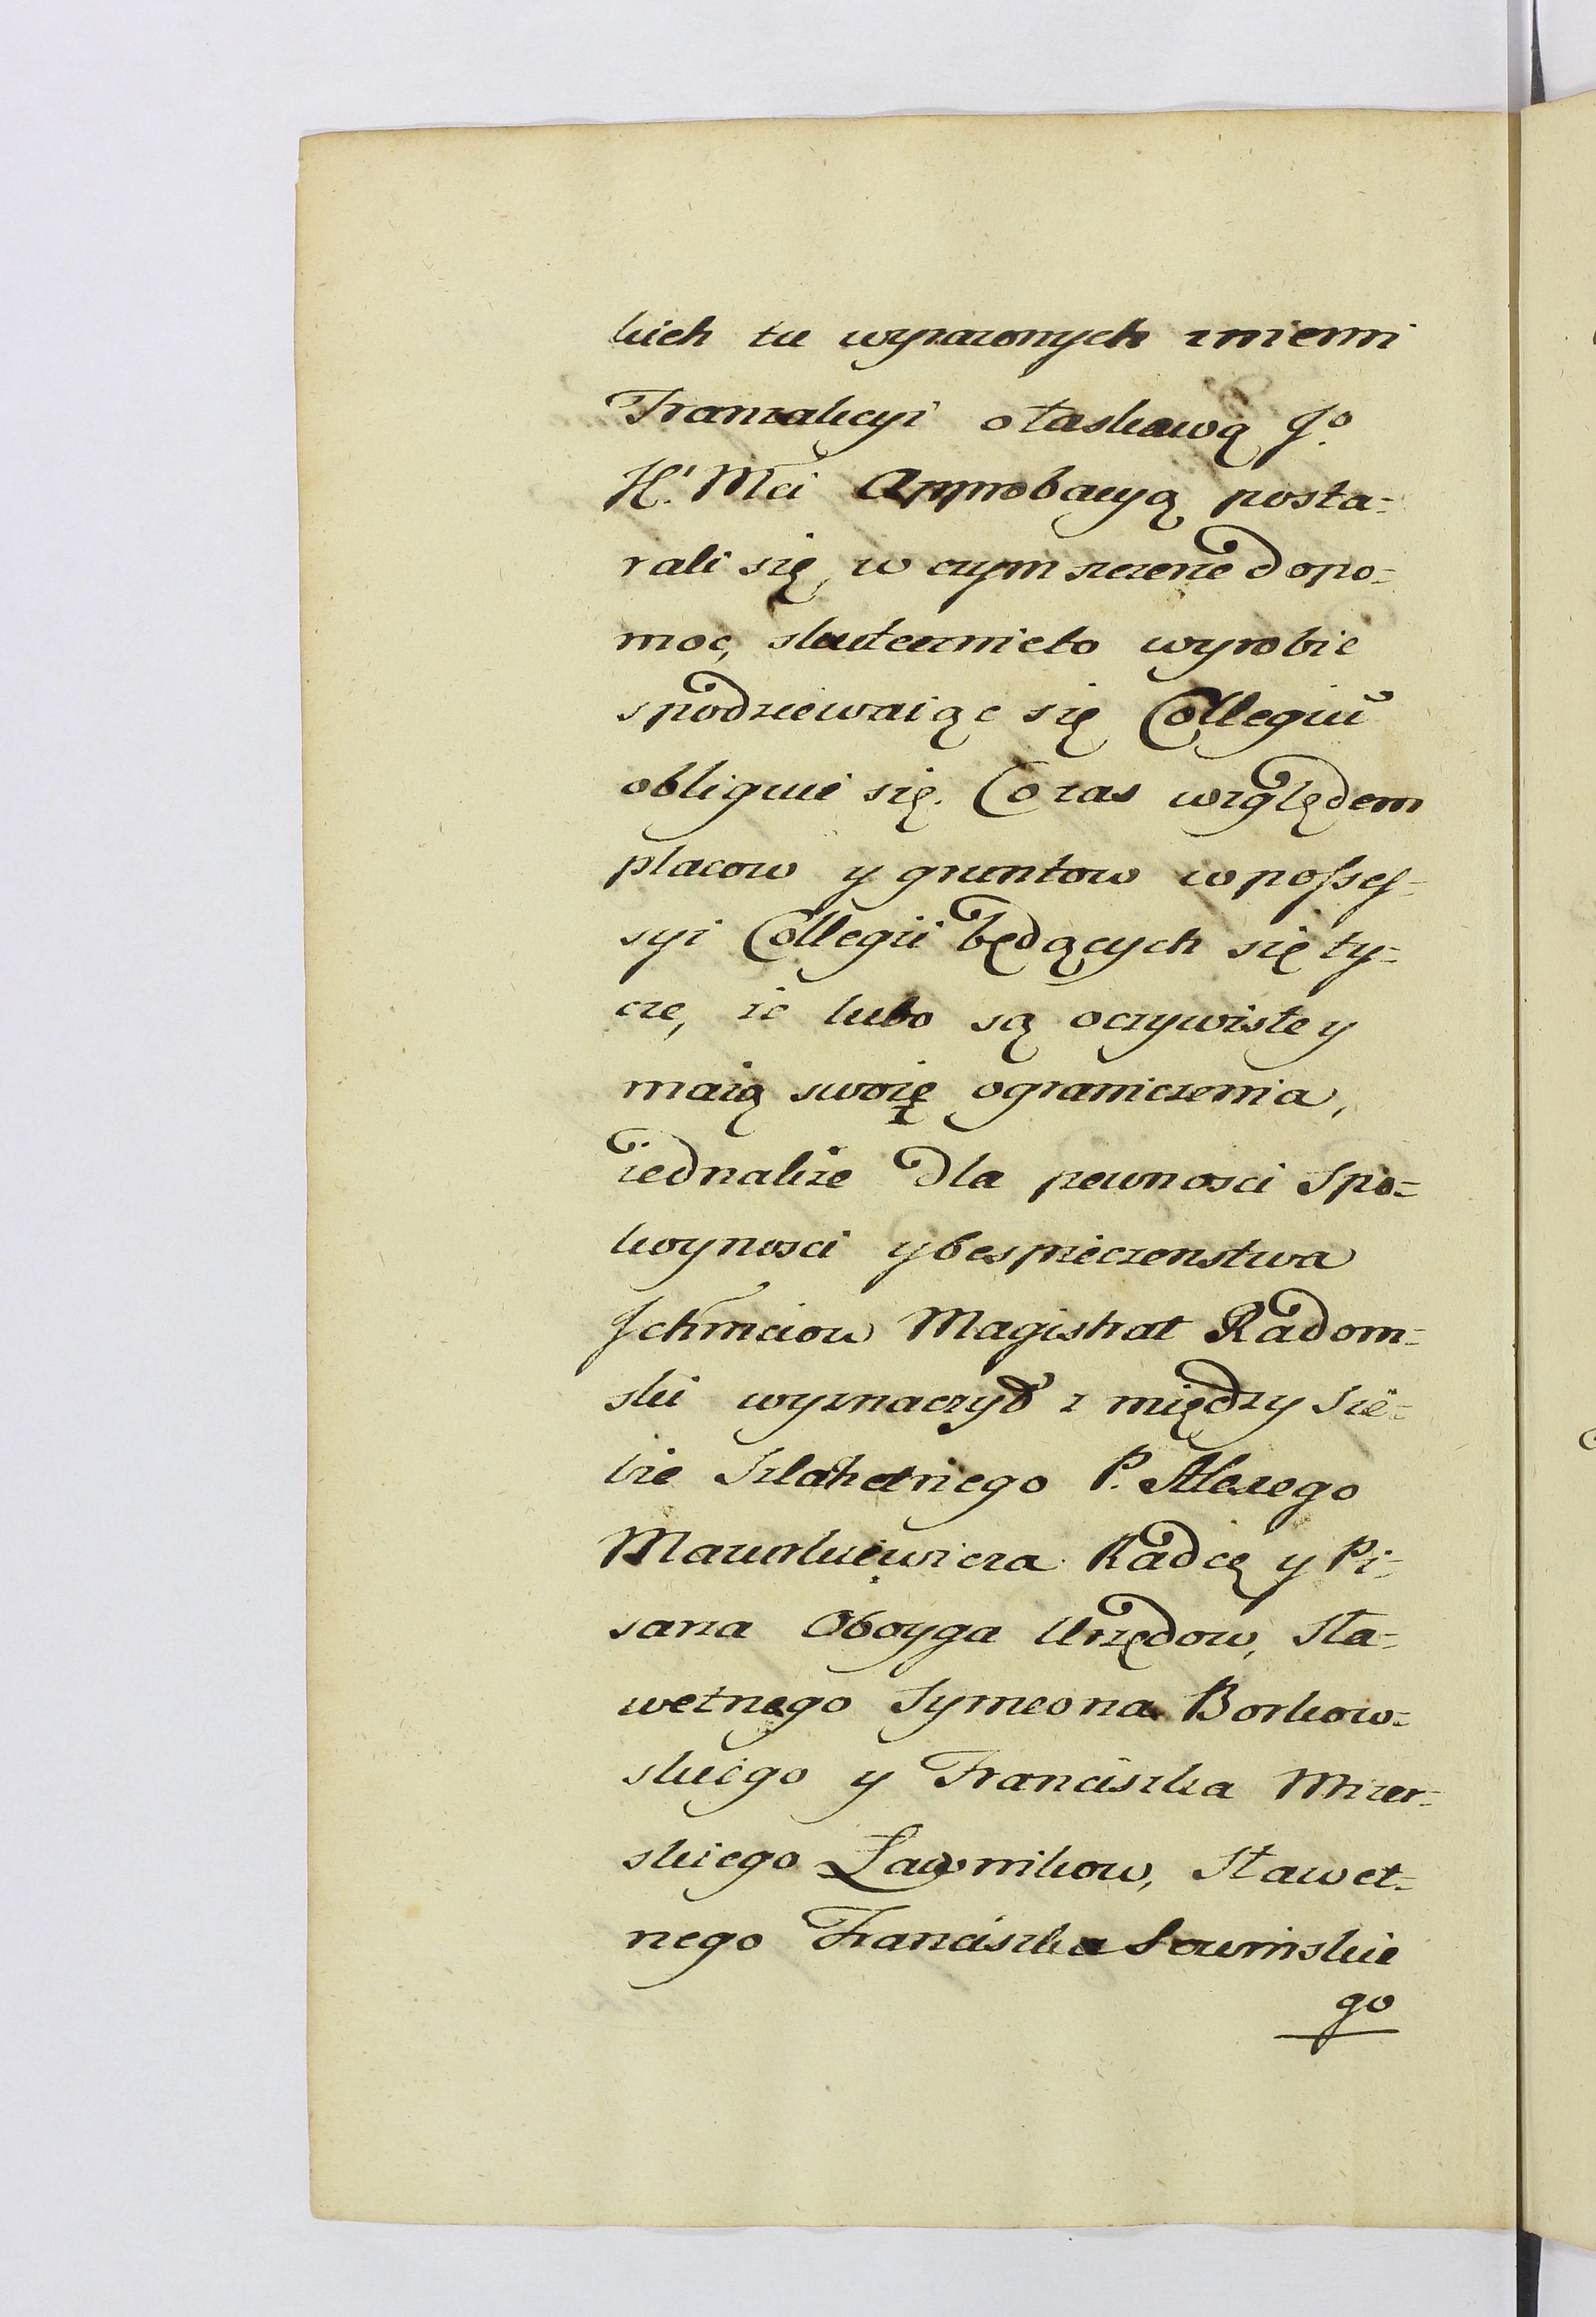 kich tu wyrazonych zniemi
Tranzakcyi o łaskawą J.º
K.' Mci Approbacyą posta=
rali się, w czym szczerze dopo=
moc, skutecznieto wyrobic
spodziewaiąc się Collegiũ
obliguie się. Co zas względem
placow y gruntow w possef=
syi Collegii będących się ty=
cze, że lubo są oczywiste y
maią swoię ograniczenia,
iednakże dla pewnosci Spo=
koynosci y bespieczenstwa
Jchmciow Magistrat Radom=
ski wyznaczył z między Sie=
bie Szlahetnego P. Alexego
Maurkiewicza Radcę y Pi=
sarza Oboyga Urzędow, Sła=
wetnego Symeona Borkow=
skiego y Franciszka Mizer=
skiego Ławnikow, Sławet=
nego Franciszka Sowinskie
go